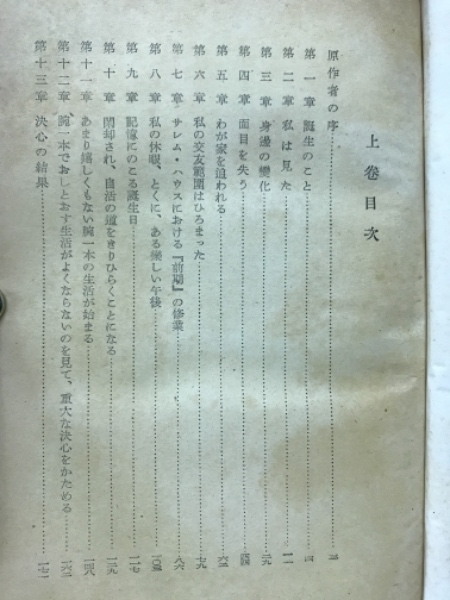 上卷目次
原作者の序
第一章 誕生のこと
第二章 私は見た 一一
第三章 身邊の變化 二九
第四章 面目を失う 四四
第五章 わが家を追われる 六二
第六章 私の交友範囲はひろまった 七九
第七章 サレム・ハウスにおける『前期』の修業 八六
第八章 私の休暇、とくに、ある樂しい午後 一〇三
第九章 記憶にのこる誕生日 一一七
第十章 閑却され、自活の道をきりひらくことになる 一二九
第十一章 あまり嬉しくもない腕一本の生活が始まる 一四八
第十二章 腕一本でおしとおす生活がよくならないのを見て、重大な決心をかためる 一六二
第十三章 決心の結果 一七一